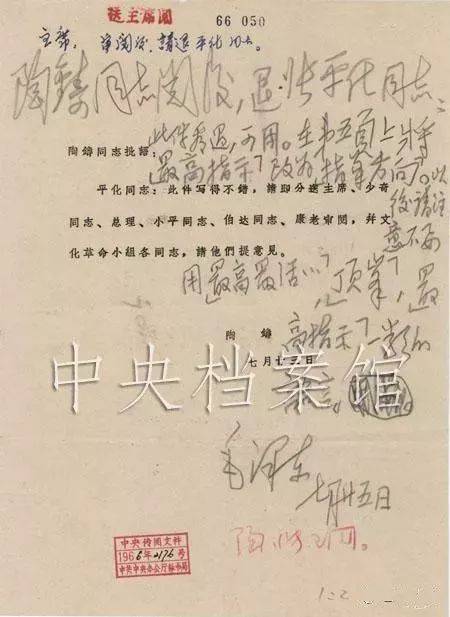 送主席阅
66 050
主席 审阅後，请退平化同志。
陶铸同志阅后，退张平化同志：
此件看过，可用。在第五页上将
陶鑄同志批語：
「最高指示」改为「指挥方向」。以
平化同志：此件写得不錯，請即分送主席、少奇
后请注
同志、总理、小平同志、伯达同志、康老审閱，幷文
意不要
化革命小組各同志，請他們提意見。
用「最高最活…」，「顶峰」，「最
陶鑄
高指示」一类的
七月十三日
中央档案馆
毛泽东
七月廿五日
中央传阅文件
1966年 2176号
中共中央办公厅秘书局